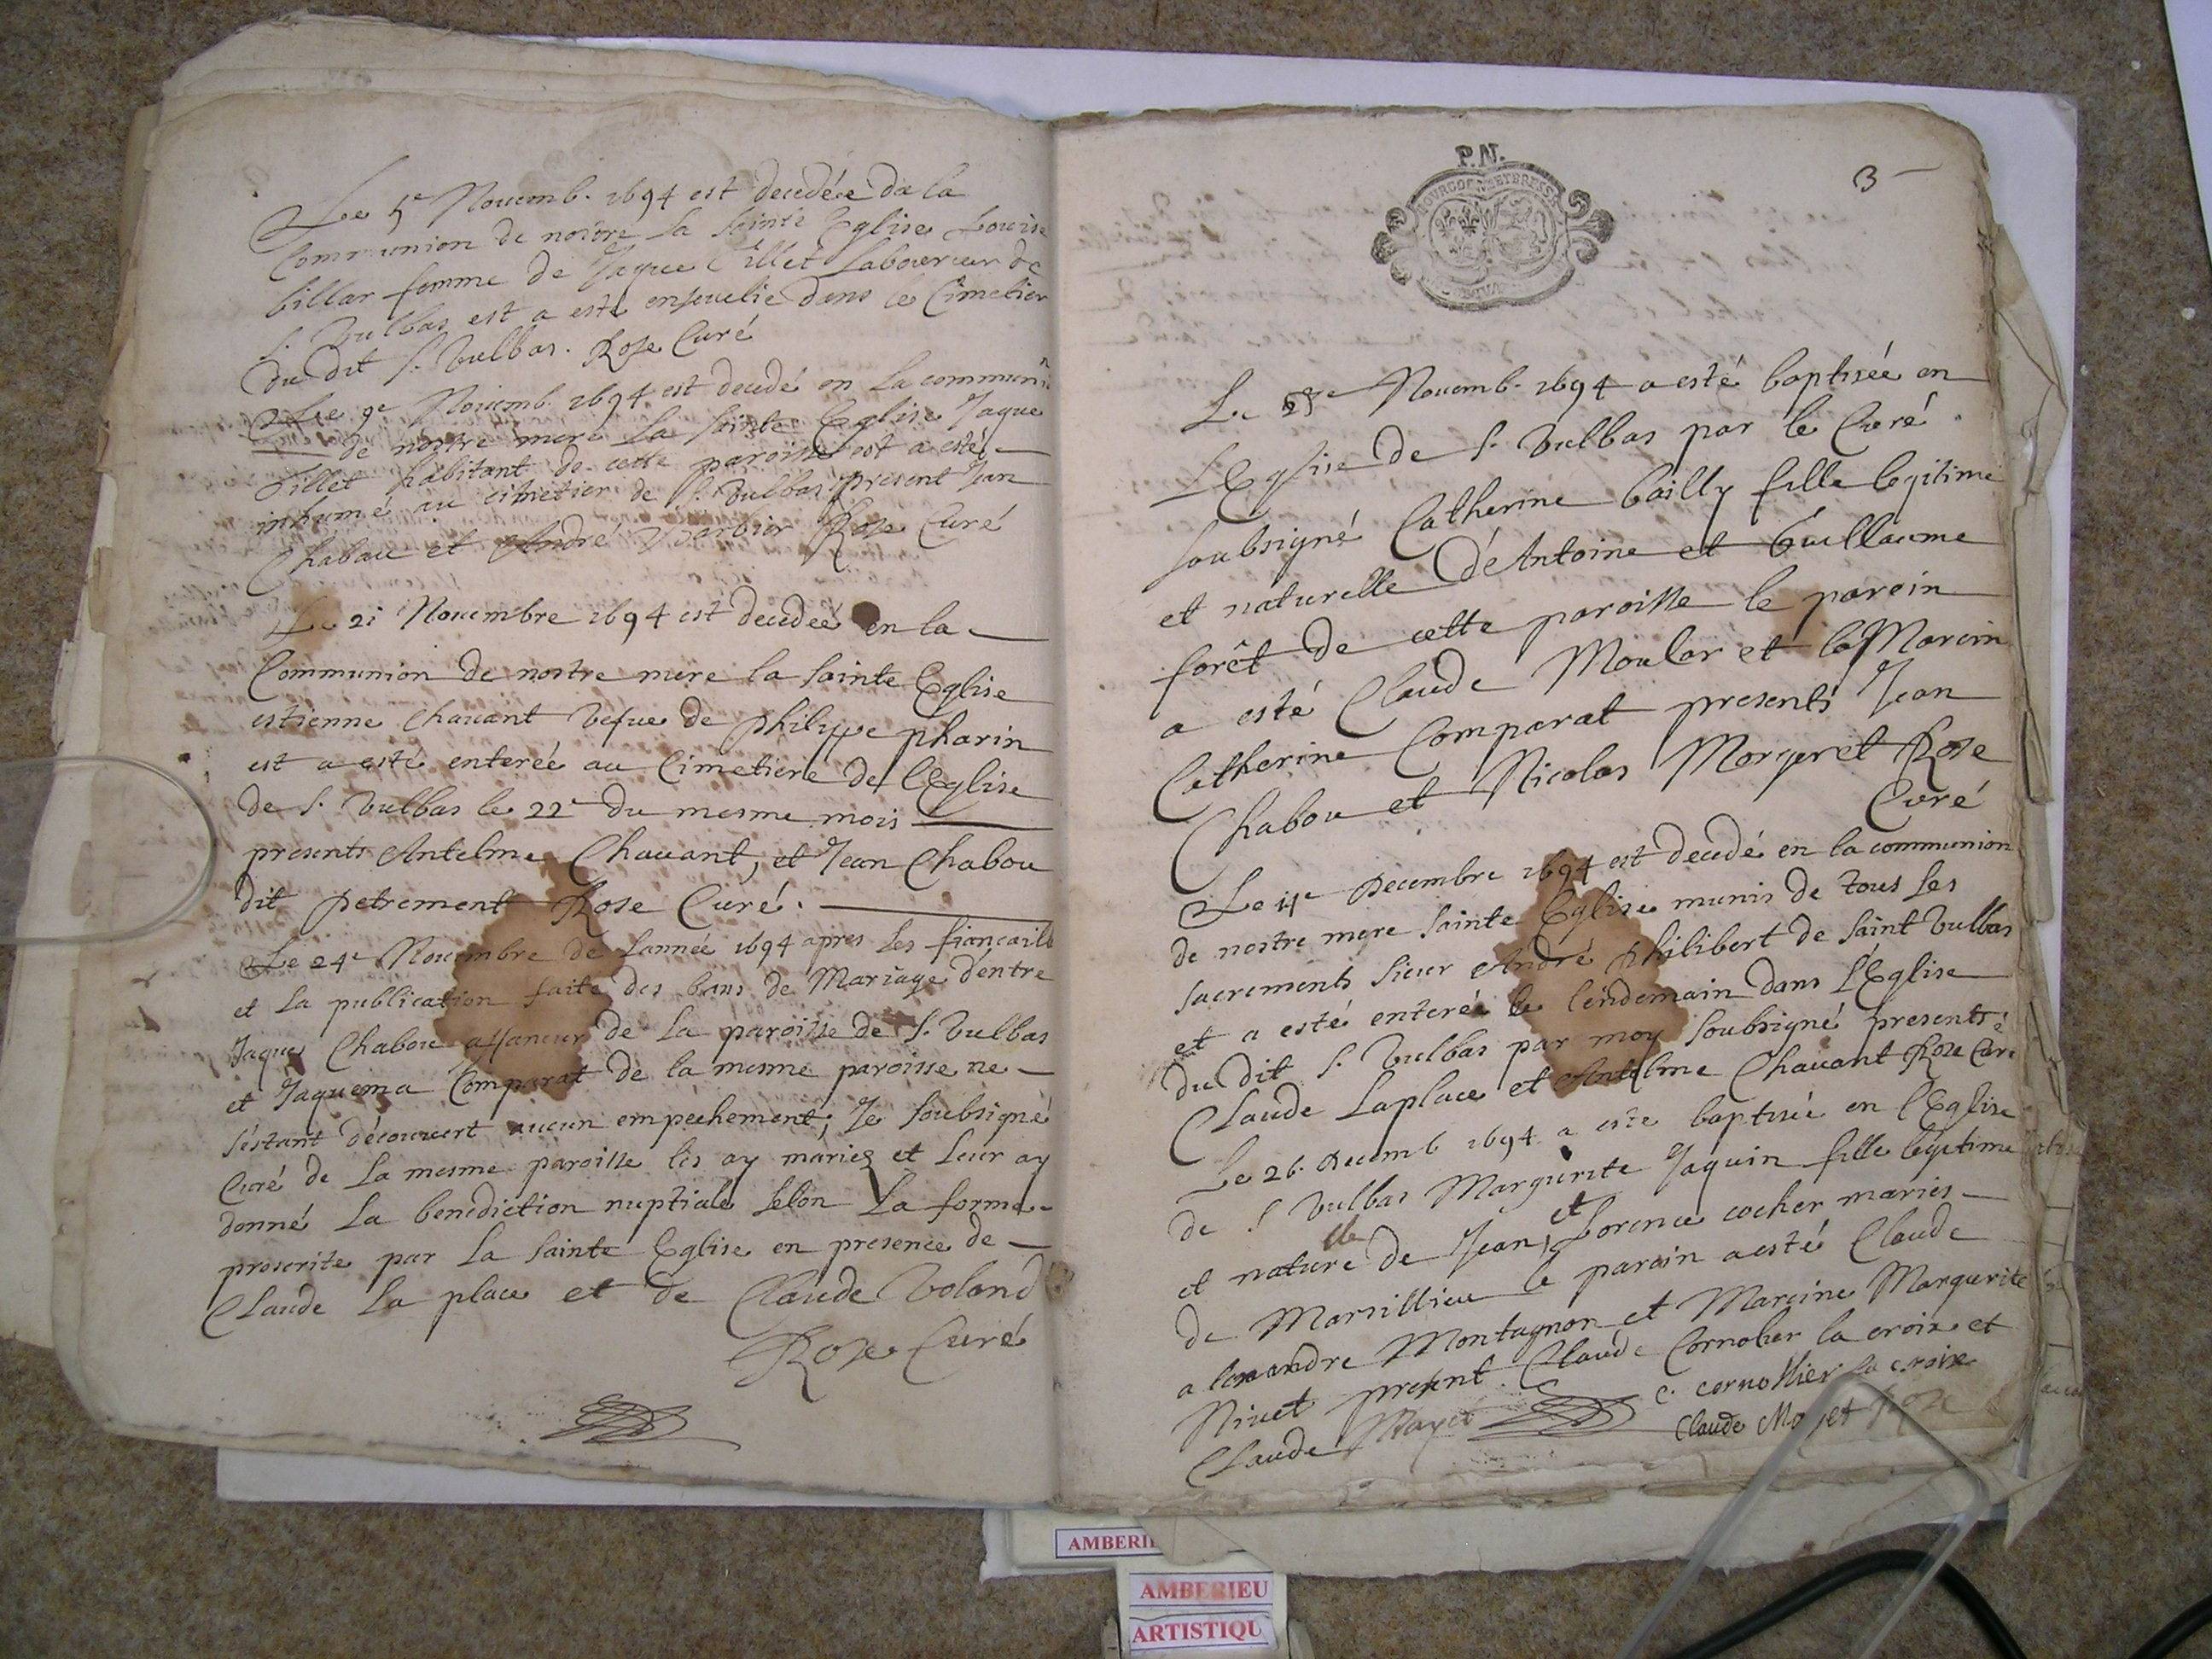 Le 5e Nouemb. 1694 est decedée da la
Communion de nostre la sainte Eglise Louise
billar femme de Jaque Tillet Laboureur de
S. Vulbas est a esté enseuelie dans le Cimetier
du dit S. Vulbas. Roze Curé
Le 9e Nouemb. 1694 est decedé en la communi
de nostre mere la sainte Eglise Jaque
Tillet habitant de cette paroisse est a esté
inhumé au cimetier de S. Vulbas present Jean
Chabou et André Barbier Roze Curé
Le 21 Nouembre 1694 est decedeé en la
Communion de nostre mere la sainte Eglise
estienne Chauant vefue de philippe pharin
est a esté enterée au Cimetiere de l'Eglise
de S. Vulbas le 22e du mesme mois
presents Antelme Chauant, et Jean Chabou
dit petrement Roze Curé.
Le 24e Nouembre de Lannée 1694 apres les fiançaill
et la publication faite des bans de Mariage d'entre
Jaque Chabou affaneur de la paroisse de S. Vulbas
et Jaquema Comparat de la mesme paroisse ne
s'estant découuert aucun empechement, Je soubsigné
Curé de la mesme paroisse les ay mariez et leur ay
donné la benediction nuptiale selon la forme
proscrite par la Sainte Eglise en presence de
Claude La place et de Claude Voland
Roze Curé
P.N.
3
BOURGOGNE ET BRESSE
Le Nouemb. 1694 a esté baptisée en
L'Eglise de S. Vulbas par le Curé
soubsigné Catherine bailly fille legitime
et naturelle d'Antoine et Guillaume
forêt de cette paroisse le parein
a esté Claude Moular et la Marein
Catherine Comparat presents Jean
Chabou et Nicolas Morgeret Roze
Curé
Le 11e Decembre 1694 est decedé en la communion
de nostre mere sainte Eglise munis de tous les
sacrements sieur André philibert de Saint Vulbas
et a esté enterée le lendemain dans l'Eglise
du dit S. Vulbas par moy soubsigné presents
Claude Laplace et Antelme Chauant Roze Curé
Le 26. Decemb 1694 a este baptisée en l'Eglise
de S Vulbas Margurite Jaquin fille legitime
et naturelle de Jean, et Lorence cocher mariés
de Marsillieu le parain a esté Claude
alexandre Montagnon et Mareine Margurite
Niuet present Claude Cornolier la croix et
Claude Mayet c. cornollier la croix
Claude Mayet Roze
AMBERIEU
ARTISTIQU